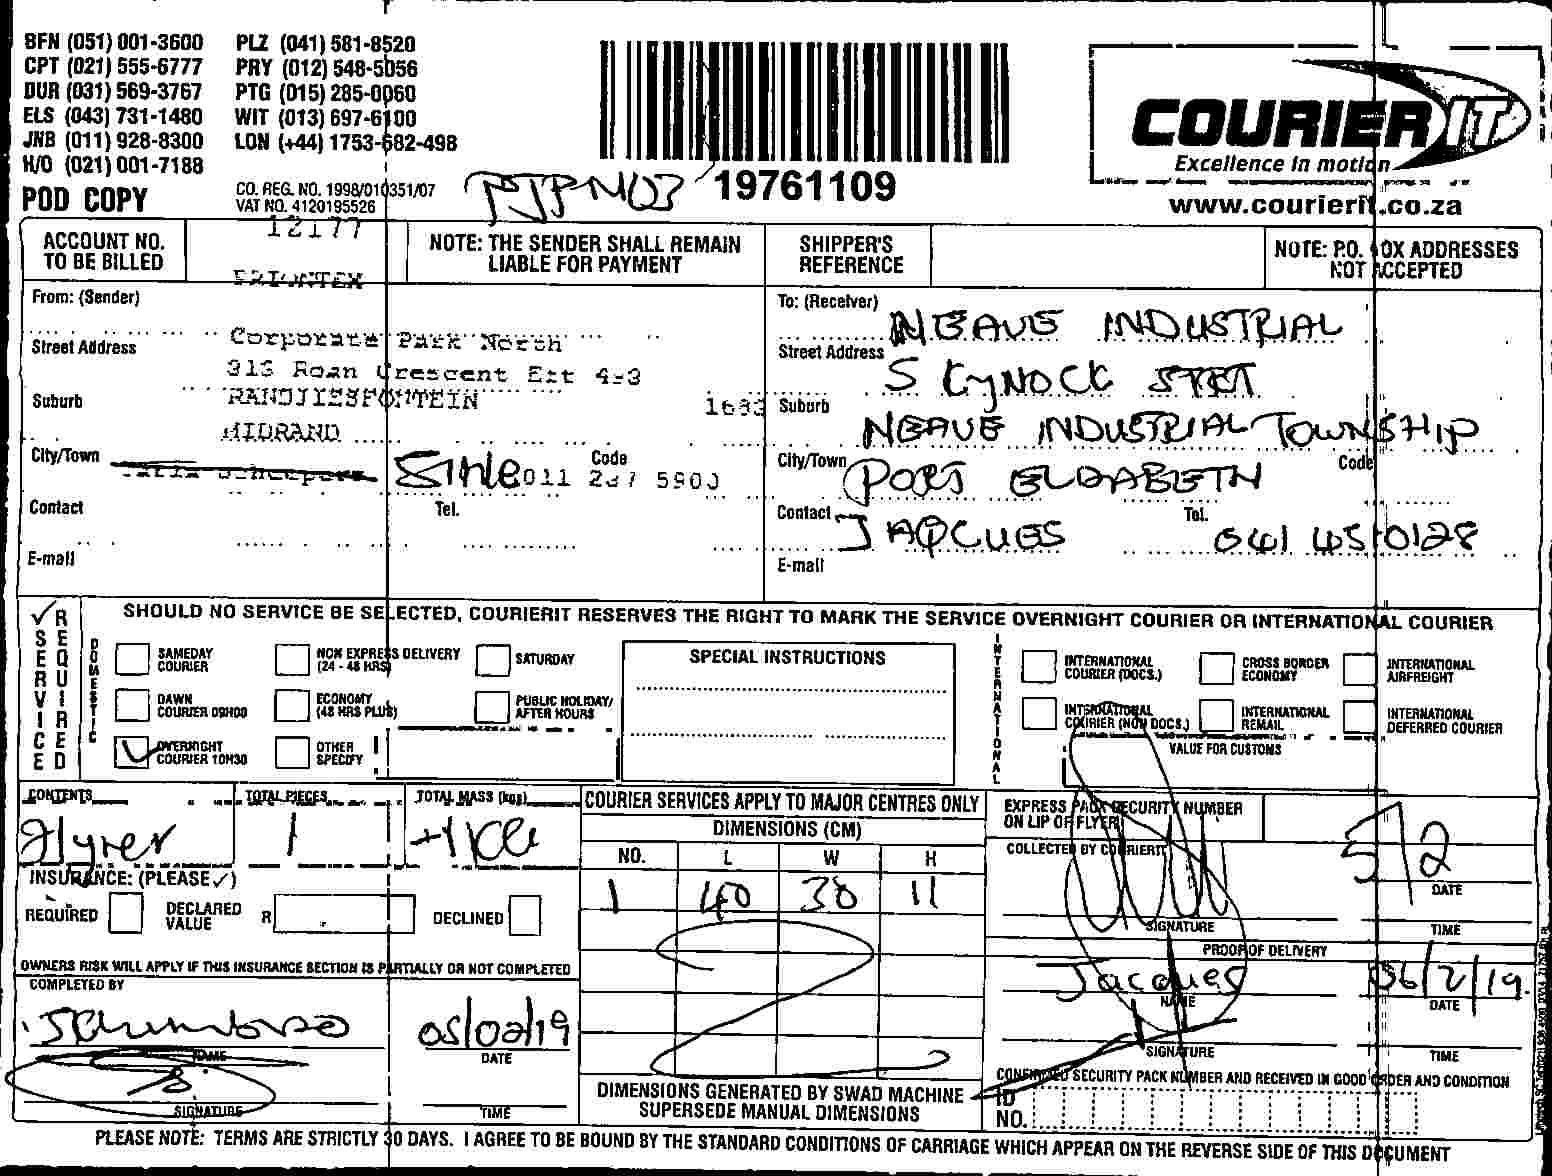 BFN (051) 001-3600 PLZ (041) 581-8520
CPT (021) 555-6777 PRY (012) 548-5056
DUR (031) 569-3767 PTG (015) 285-0060
ELS (043) 731-1480 WIT (013) 697-6100
JNB (011) 928-8300 LON (+44) 1753-682-498
H/O (021) 001-7188
POD COPY
CO. REG. NO. 1998/010351/07
VAT NO. 4120195526
19761109
COURIER IT
Excellence in motion
www.courierit.co.za
ACCOUNT NO. TO BE BILLED
12177
NOTE: THE SENDER SHALL REMAIN LIABLE FOR PAYMENT
SHIPPER'S REFERENCE
NOTE: P.O. BOX ADDRESSES NOT ACCEPTED
From: (Sender)
Street Address Corporate Park North
313 Roan Crescent Ext
Suburb RANDJIESFONTEIN
MIDRAND
City/Town
Code
011 237 5900
Contact
Tel.
E-mail
To: (Receiver) NEAVE INDUSTRIAL
Street Address
5 KYNOCK STRT
Suburb
NEAVE INDUSTRIAL TOWNSHIP
City/Town PORT ELIZABETH Code
Contact JAQCUES Tel. 041 4510128
E-mail
SERVICE REQUIRED
SHOULD NO SERVICE BE SELECTED, COURIERIT RESERVES THE RIGHT TO MARK THE SERVICE OVERNIGHT COURIER OR INTERNATIONAL COURIER
DOMESTIC
SAMEDAY COURIER
NON EXPRESS DELIVERY (24 - 48 HRS)
SATURDAY
DAWN COURIER 09H00
ECONOMY (48 HRS PLUS)
PUBLIC HOLIDAY/ AFTER HOURS
OVERNIGHT COURIER 10H30
OTHER SPECIFY
SPECIAL INSTRUCTIONS
INTERNATIONAL
INTERNATIONAL COURIER (DOCS.)
CROSS BORDER ECONOMY
INTERNATIONAL AIRFREIGHT
INTERNATIONAL COURIER (NON DOCS.)
INTERNATIONAL REMAIL
INTERNATIONAL DEFERRED COURIER
VALUE FOR CUSTOMS
CONTENTS
TOTAL PIECES
1
TOTAL MASS (kgs)
INSURANCE: (PLEASE ✓)
REQUIRED
DECLARED VALUE R
DECLINED
OWNERS RISK WILL APPLY IF THIS INSURANCE SECTION IS PARTIALLY OR NOT COMPLETED
COMPLETED BY
NAME
05/02/19
DATE
SIGNATURE
TIME
COURIER SERVICES APPLY TO MAJOR CENTRES ONLY
DIMENSIONS (CM)
NO. L W H
1 40 30 11
DIMENSIONS GENERATED BY SWAD MACHINE SUPERSEDE MANUAL DIMENSIONS
EXPRESS PACK SECURITY NUMBER ON LIP OF FLYER
COLLECTED BY COURIERIT
5/2
DATE
SIGNATURE
TIME
PROOF OF DELIVERY
Jacques
NAME
06/2/19
DATE
SIGNATURE
TIME
CONFIRMED SECURITY PACK NUMBER AND RECEIVED IN GOOD ORDER AND CONDITION
ID NO.
PLEASE NOTE: TERMS ARE STRICTLY 30 DAYS. I AGREE TO BE BOUND BY THE STANDARD CONDITIONS OF CARRIAGE WHICH APPEAR ON THE REVERSE SIDE OF THIS DOCUMENT